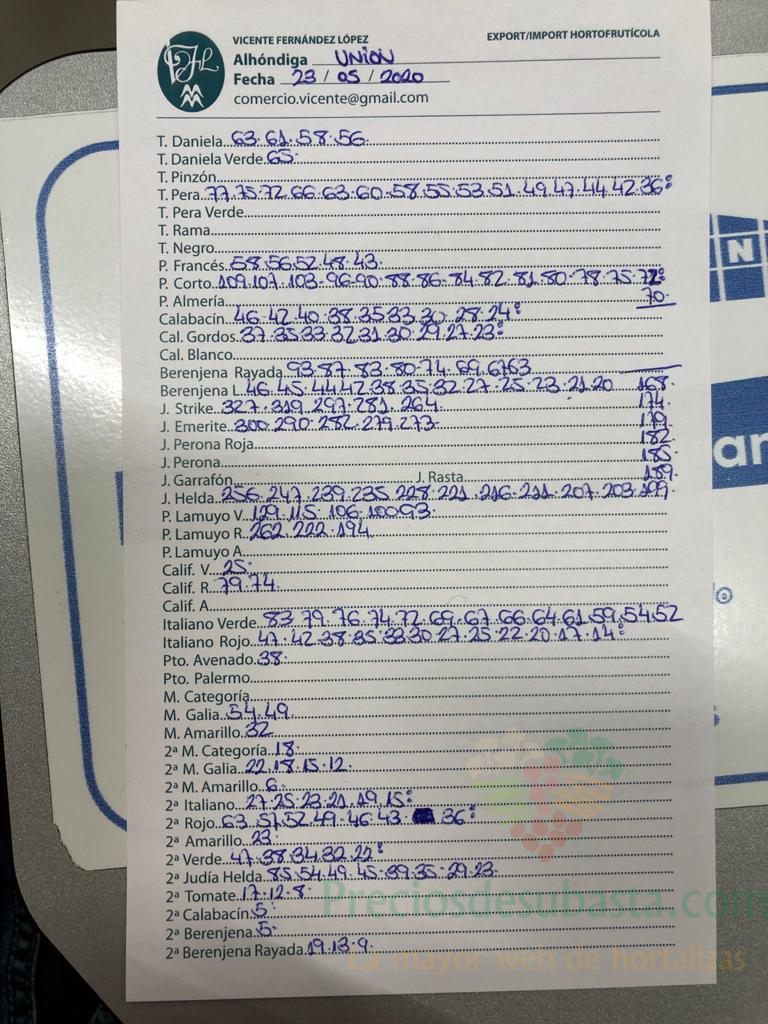 VICENTE FERNÁNDEZ LÓPEZ
EXPORT/IMPORT HORTOFRUTÍCOLA
Alhóndiga UNION
Fecha 23 / 05 / 2020
comercio.vicente@gmail.com
T. Daniela 63.61.58.56.
T. Daniela Verde 65.
T. Pinzón
T. Pera 77.75.72.66.63.60.58.55.53.51.49.47.44.42.36:
T. Pera Verde
T. Rama
T. Negro
P. Francés 58.56.52.48.43.
P. Corto 109.107.103.96.90.88.86.84.82.81.80.78.75.72:
P. Almería 70.
Calabacín 46.42.40.38.35.33.30.28.24:
Cal. Gordos 37.35.33.32.31.30.29.27.23:
Cal. Blanco
Berenjena Rayada 93.87.83.80.74.69.67.63
Berenjena L. 46.45.44.42.38.35.32.27.25.23.21.20 168.
J. Strike 327.319.297.281.264 174.
J. Emerite 300.290.282.279.273. 179.
J. Perona Roja 182.
J. Perona 185.
J. Garrafón J. Rasta 189.
J. Helda 256.247.239.235.228.221.216.211.207.203.199.
P. Lamuyo V. 129.115.106.100.93.
P. Lamuyo R. 262.222.194.
P. Lamuyo A.
Calif. V. 25.
Calif. R. 79.74.
Calif. A.
Italiano Verde 83.79.76.74.72.69.67.66.64.61.59.54.52
Italiano Rojo 47.42.38.35.33.30.27.25.22.20.17.14:
Pto. Avenado 38.
Pto. Palermo
M. Categoría
M. Galia 54.49.
M. Amarillo 32
2ª M. Categoría 18.
2ª M. Galia 22.18.15.12.
2ª M. Amarillo 6.
2ª Italiano 27.25.23.21.19.15:
2ª Rojo 63.57.52.49.46.43. 36:
2ª Amarillo 23.
2ª Verde 47.38.34.32.22:
2ª Judía Helda 85.54.49.45.39.35.29.23.
2ª Tomate 17.12.8.
2ª Calabacín 5.
2ª Berenjena 5.
2ª Berenjena Rayada 19.13.9.
Preciosdesubasta.com
La mayor web de hortalizas